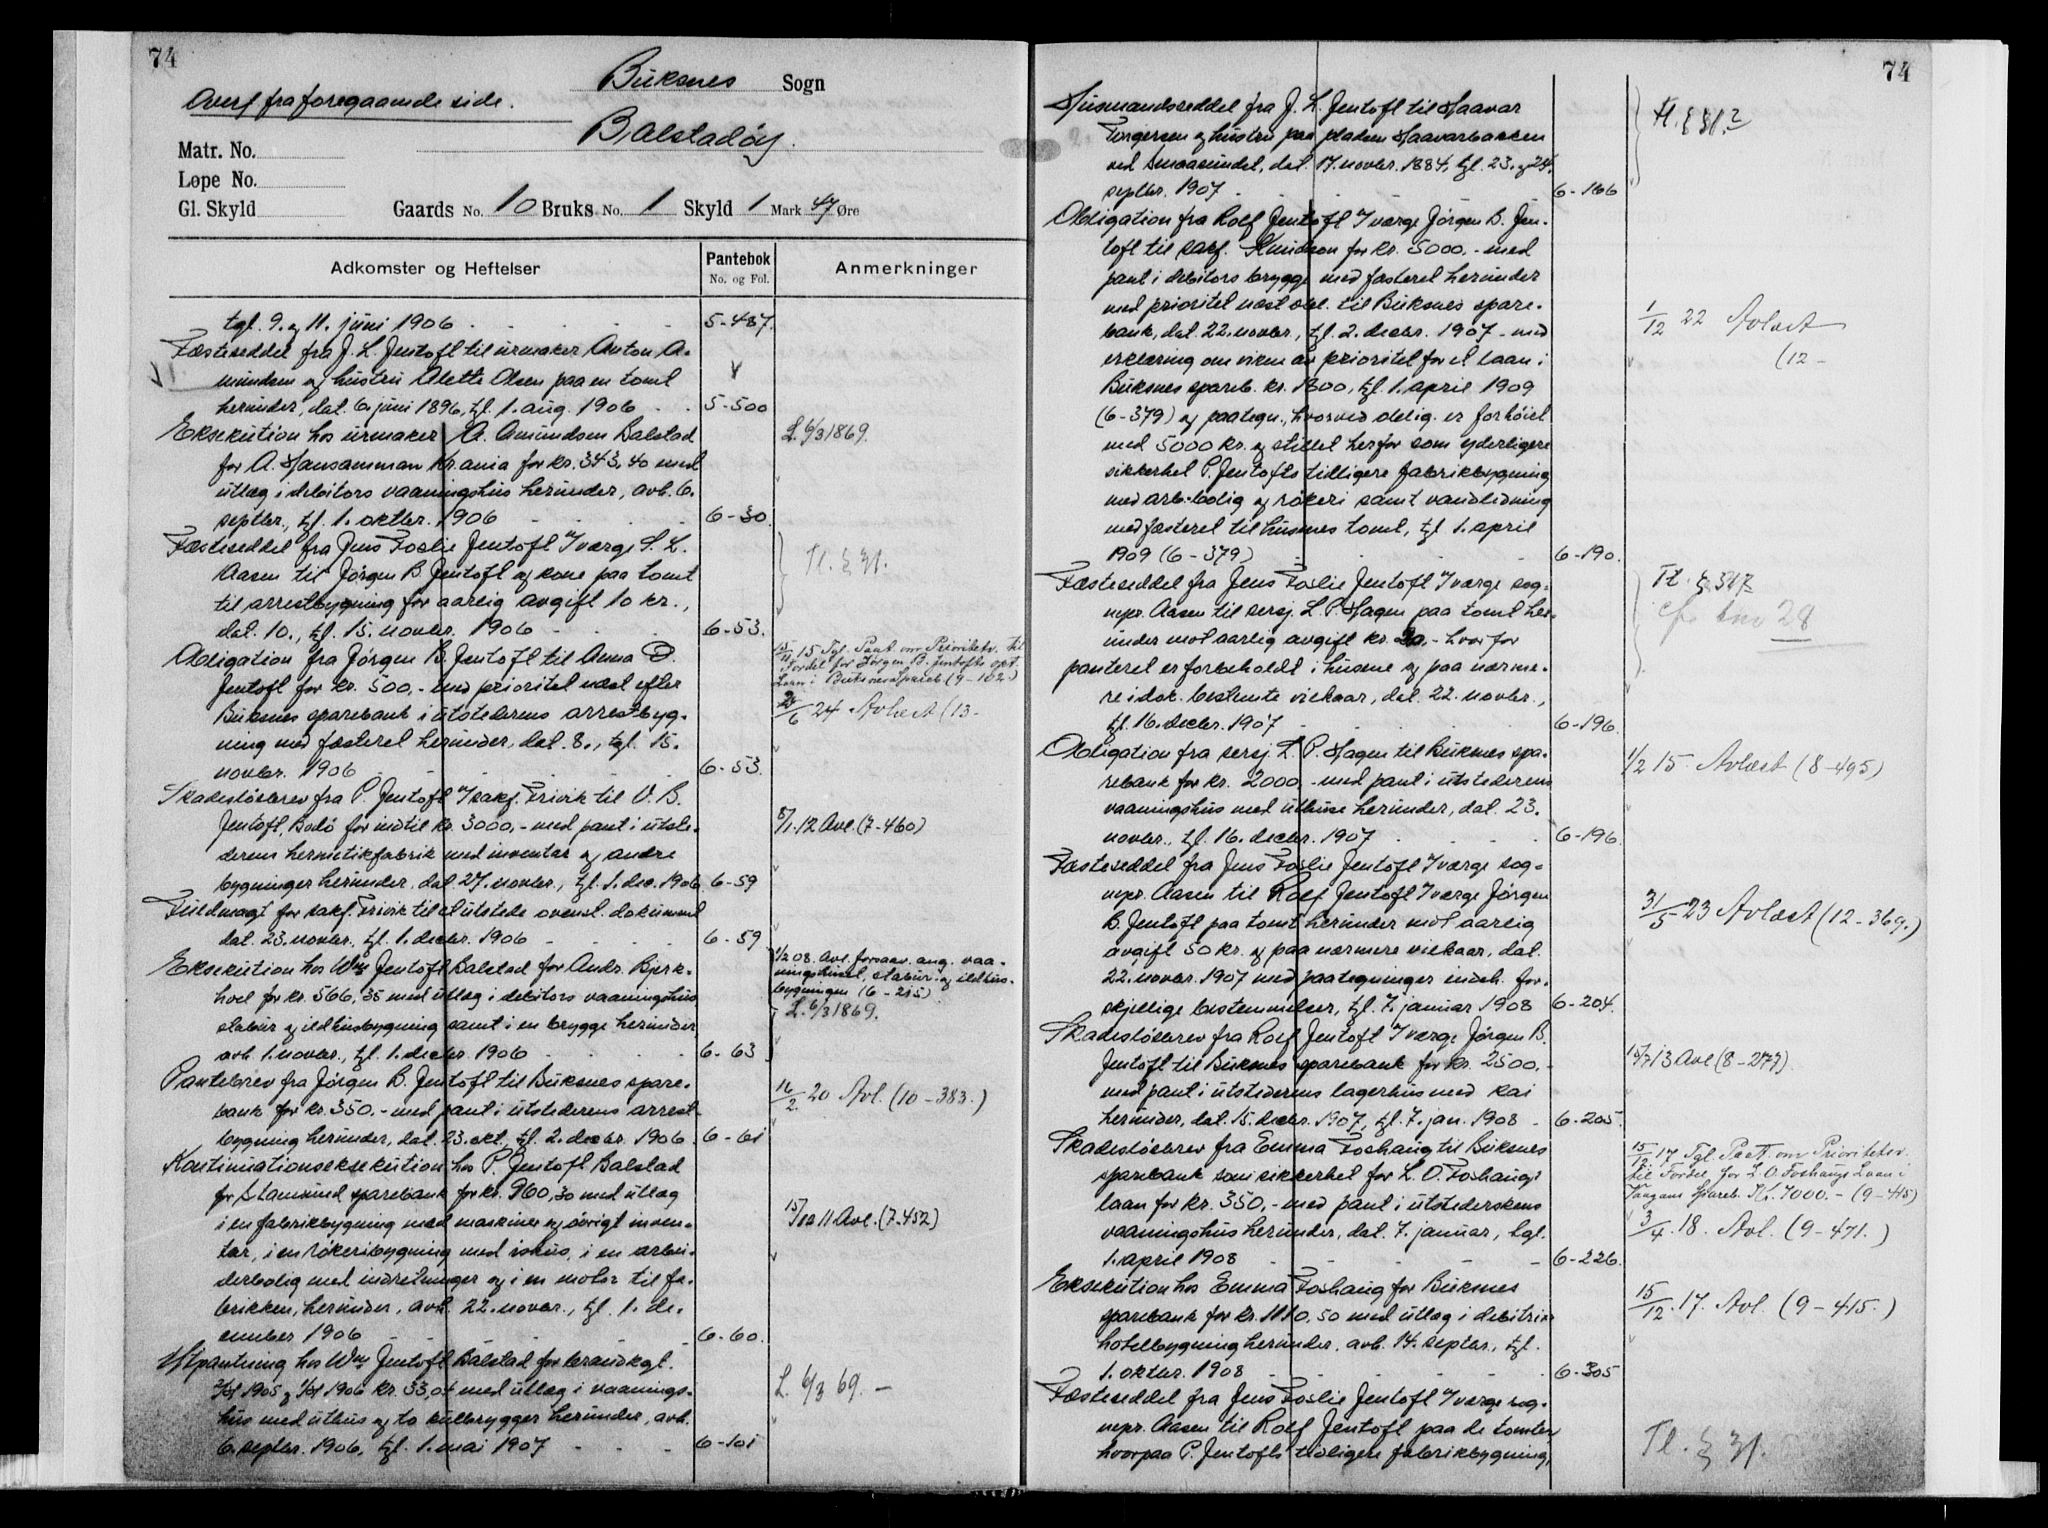 74
Buksnes Sogn
Overf fra foregaaende side.
Balstadøy.
Matr. No.
Løpe No.
Gl. Skyld
Gaards No. 10 Bruks No. 1 Skyld 1 Mark 47 Øre
Adkomster og Heftelser
Pantebok
No. og Fol.
Anmerkninger
tgl. 9. og 11. juni 1906 5-487.
Fæsteseddel fra J. L. Jentoft til urmaker Anton A-
mundsen og hustru Alette Olsen paa en tomt
herunder, dat. 6. juni 1896, tgl. 1. aug. 1906 5-500
Eksekution hos urmaker A. Amundsen Balstad L. 6/3 1869.
for A. Hansamman Kr.ania for kr. 343,40 med
utlæg i debitors vaaningshus herunder, avh. 6.
septbr., tgl. 1. oktbr. 1906 6-30
Fæsteseddel fra Jens Foslie Jentoft v/verge S. L.
Aasen til Jørgen B. Jentoft og kone paa tomt Tl. § 31.
til arrestbygning for aarlig avgift 10 kr.,
dat. 10., tgl. 15. novbr. 1906 6-53.
Obligation fra Jørgen B. Jentoft til Anna D.
Jentoft for kr. 500,- med prioritet næst efter
Buksnes sparebank i utstederens arrestbyg-
ning med fæsteret herunder, dat. 8., tgl. 15.
novbr. 1906 6-53.
15 Tgl. Paat. om Prioritetsv. til
Fordel for Jørgen B. Jentofts opt.
Laan i Buksnes Spareb. (9-102)
/6 24 Avlæst (13-
Skadesløsbrev fra P. Jentoft v/sakf. Trivik til V. B.
Jentoft, Bodø for indtil kr. 3000,- med pant i utste- 8/1.12 Avl. (7-460)
derens hermetikfabrik med inventar og andre
bygninger herunder, dat. 27. novbr., tgl. 1. dec. 1906 6-59
Fuldmagt for sakf. Trivik til at utstede ovenst. dokument
dat. 23. novbr., tgl. 1. decbr. 1906 6-59
Eksekution hos Wm Jentoft Balstad for Andr. Bjerk-
hoel for kr. 566,35 med utlæg i debitors vaaningshus
stabur og ildhusbygning samt i en brygge herunder
avh. 1. novbr., tgl. 1. decbr. 1906 6-63
1/2 08. Avl. forsaav. ang. vaa-
ningshuset, stabur og ildhus-
bygningen (6-215)
L. 6/3 1869.
Pantebrev fra Jørgen B. Jentoft til Buksnes spare-
bank for kr. 350.- med pant i utstederens arrest- 16/2. 20 Avl. (10-383.)
bygning herunder, dat. 23. okt., tgl. 2. decbr. 1906 6-61
Kontinuationseksekution hos P. Jentoft Balstad
for Stamsund sparebank for kr. 960,30 med utlæg
i en fabrikbygning med maskiner og øvrigt inven- 15/10 11 Avl. (7-452)
tar, i en røkeribygning med ishus, i en arbei-
derbolig med indretninger og i en motor til fa-
brikken, herunder, avh. 22. novbr., tgl. 1. de-
cember 1906 6-60.
Utpantning hos Wm Jentoft Balstad for brandkgt.
1905 og 1906 kr. 33,04 med utlæg i vaanings- L. 6/3 69. -
hus med uthus og to kulbrygger herunder, avh.
6. septbr. 1906, tgl. 1. mai 1907 6-101
74
Husmandsseddel fra J. L. Jentoft til Haavar
Torgersen og hustru paa pladsen Haavarbakken Tl. § 31.2
ved Smaasundet, dat. 17. novbr. 1884, tgl. 23. og 24.
septbr. 1907 6-166
Obligation fra Rolf Jentoft v/værge Jørgen B. Jen-
toft til sakf. Knudson for kr. 5000,- med
pant i debitors brygge med fæsteret herunder
med prioritet næst obl. til Buksnes spare-
bank, dat. 22. novbr., tgl. 2. decbr. 1907 - med 1/12 22 Avlæst
erklæring om viken av prioritet for et laan i (12-
Buksnes spareb. kr. 1300, tgl. 1. april 1909
(6-379) og paategn., hvorved oblig. er forhøiet
med 5000 kr. og stillet herfor som yderligere
sikkerhet P. Jentofts tidligere fabrikbygning
med arb.bolig og røkeri samt vandledning
med fæsteret til husenes tomt, tgl. 1. april
1909 (6-379) 6-190.
Fæsteseddel fra Jens Foslie Jentoft v/værge sog-
nepr. Aasen til sersj. L. P. Hagen paa tomt her-
under mot aarlig avgift kr. 20,- hvorfor
panteret er forbeholdt i husene og paa nærme-
re i dok. bestemte vilkaar, dat. 22. novbr.,
tgl. 16. decbr. 1907 6-196.
Tl. § 31.2
28
Obligation fra sersj. L. P. Hagen til Buksnes spa-
rebank for kr. 2000,- med pant i utstederens 1/2 15 Avlæst (8-495)
vaaningshus med uthuse herunder, dat. 23.
novbr., tgl. 16. decbr. 1907 6-196.
Fæsteseddel fra Jens Foslie Jentoft v/værge sog-
nepr. Aasen til Rolf Jentoft v/værge Jørgen
B. Jentoft paa tomt herunder mot aarlig 31/5 23 Avlæst (12-369.)
avgift 50 kr. og paa nærmere vilkaar, dat.
22. novbr. 1907 med paategninger indeh. for-
skjellige bestemmelser, tgl. 7. januar 1908 6-204.
Skadesløsbrev fra Rolf Jentoft v/værge Jørgen B.
Jentoft til Buksnes sparebank for kr. 2500,- /7 13 Avl (8-277).
med pant i utstederens lagerhus med kai
herunder, dat. 15. decbr. 1907, tgl. 7. jan. 1908 6-205.
Skadesløsbrev fra Emma Foshaug til Buksnes
sparebank som sikkerhet for L. O. Foshaugs
laan for kr. 350,- med pant i utstederskens
vaaningshus herunder, dat. 7. januar, tgl.
1. april 1908 6-226.
15/12 17 Tgl. Paat. om Prioritetsv.
til Fordel for L. O. Foshaugs Laan i
Vaagans Spareb. Kr. 7000.- (9-415)
3/4. 18. Avl. (9-471.)
Eksekution hos Emma Foshaug for Buksnes
sparebank for kr. 1110,50 med utlæg i debitrix 15/12. 17. Avl. (9-415.)
hotelbygning herunder, avh. 14. septbr., tgl.
1. oktbr. 1908 6-305
Fæsteseddel fra Jens Foslie Jentoft v/værge sog-
nepr. Aasen til Rolf Jentoft paa de tomter
hvorpaa P. Jentofts tidligere fabrikbygning, Tl. § 31.